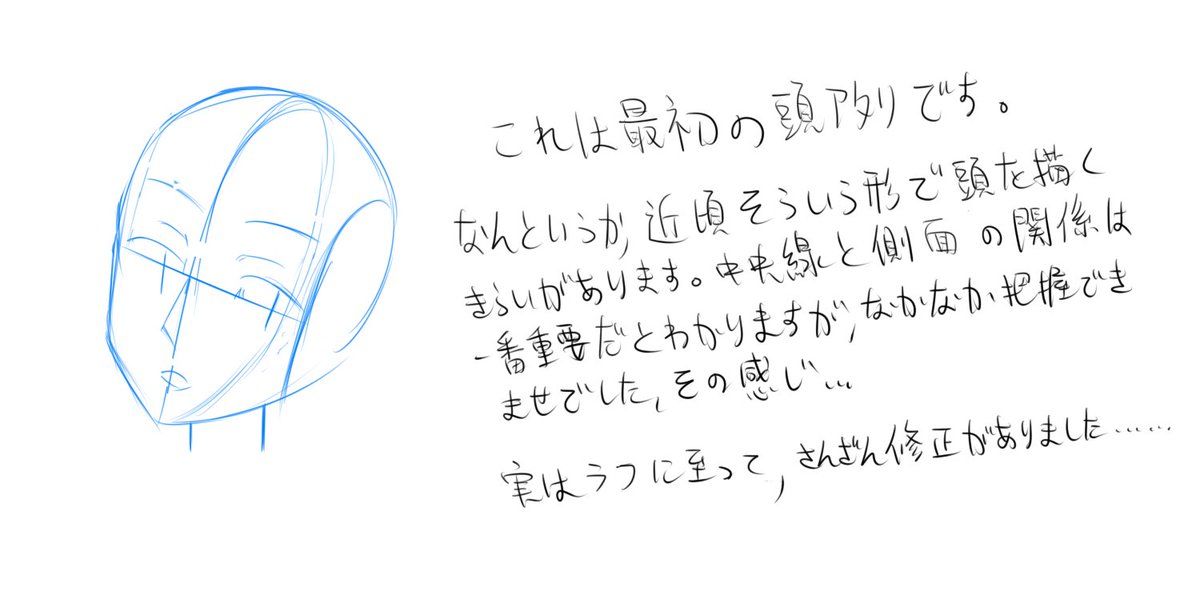 これは最初の頭アタリです。
なんというか、近頃そういう形で頭を描く
きらいがあります。中央線と側面の関係は
一番重要だとわかりますが、なかなか把握でき
ませでした、その感じ…
実はラフに至って、さんざん修正がありました……